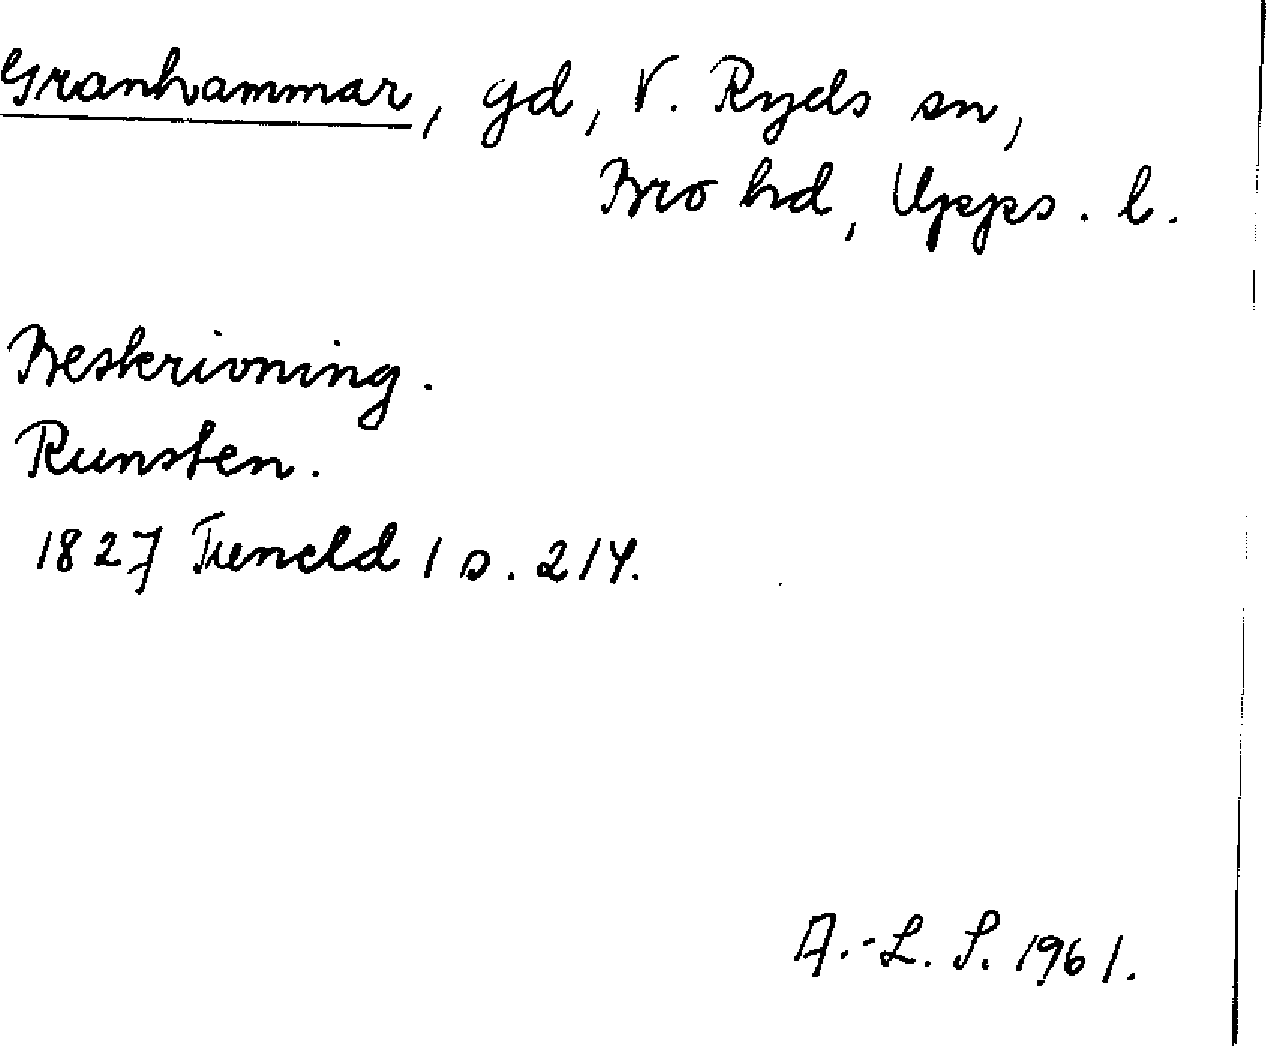 Granhammar, gd, V. Ryds sn,
Bro hd, Upps. l.
Beskrivning.
Runsten.
1827 Tuneld 1 s. 214.
A.-L. S. 1961.